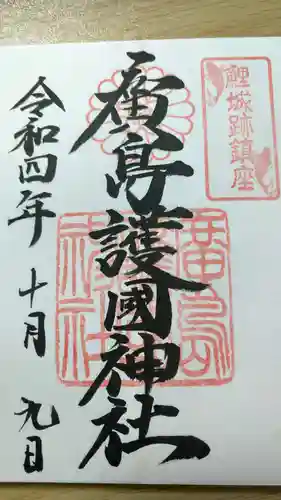 鯉城跡鎮座
廣島護國神社
令和四年 十月 九日